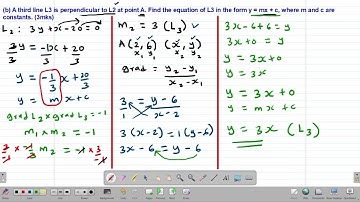 (b) A third line L3 is perpendicular to L2 at point A. Find the equation of L3 in the form y = mx + c, where m and c are
constants. (3mks)
L2: 3y + x - 20 = 0
3y = -1x + 20
3 3 3
y = -1/3 x + 20/3
y = m x + c
grad L2 x grad L3 = -1
m1 x m2 = -1
3/-1 x -1/3 m2 = -1 x 3/-1
m2 = 3 (L3) ✓
A (2, 6) (x, y)
x1 y1 x2 y2
grad = y2 - y1
x2 - x1
3 = y - 6
1 x - 2
3 (x - 2) = 1 (y - 6)
3x - 6 = y - 6
3x - 6 + 6 = y
3x + 0 = y
y = 3x + 0
y = 3x
y = 3x + 0
y = m x + c
y = 3x (L3)